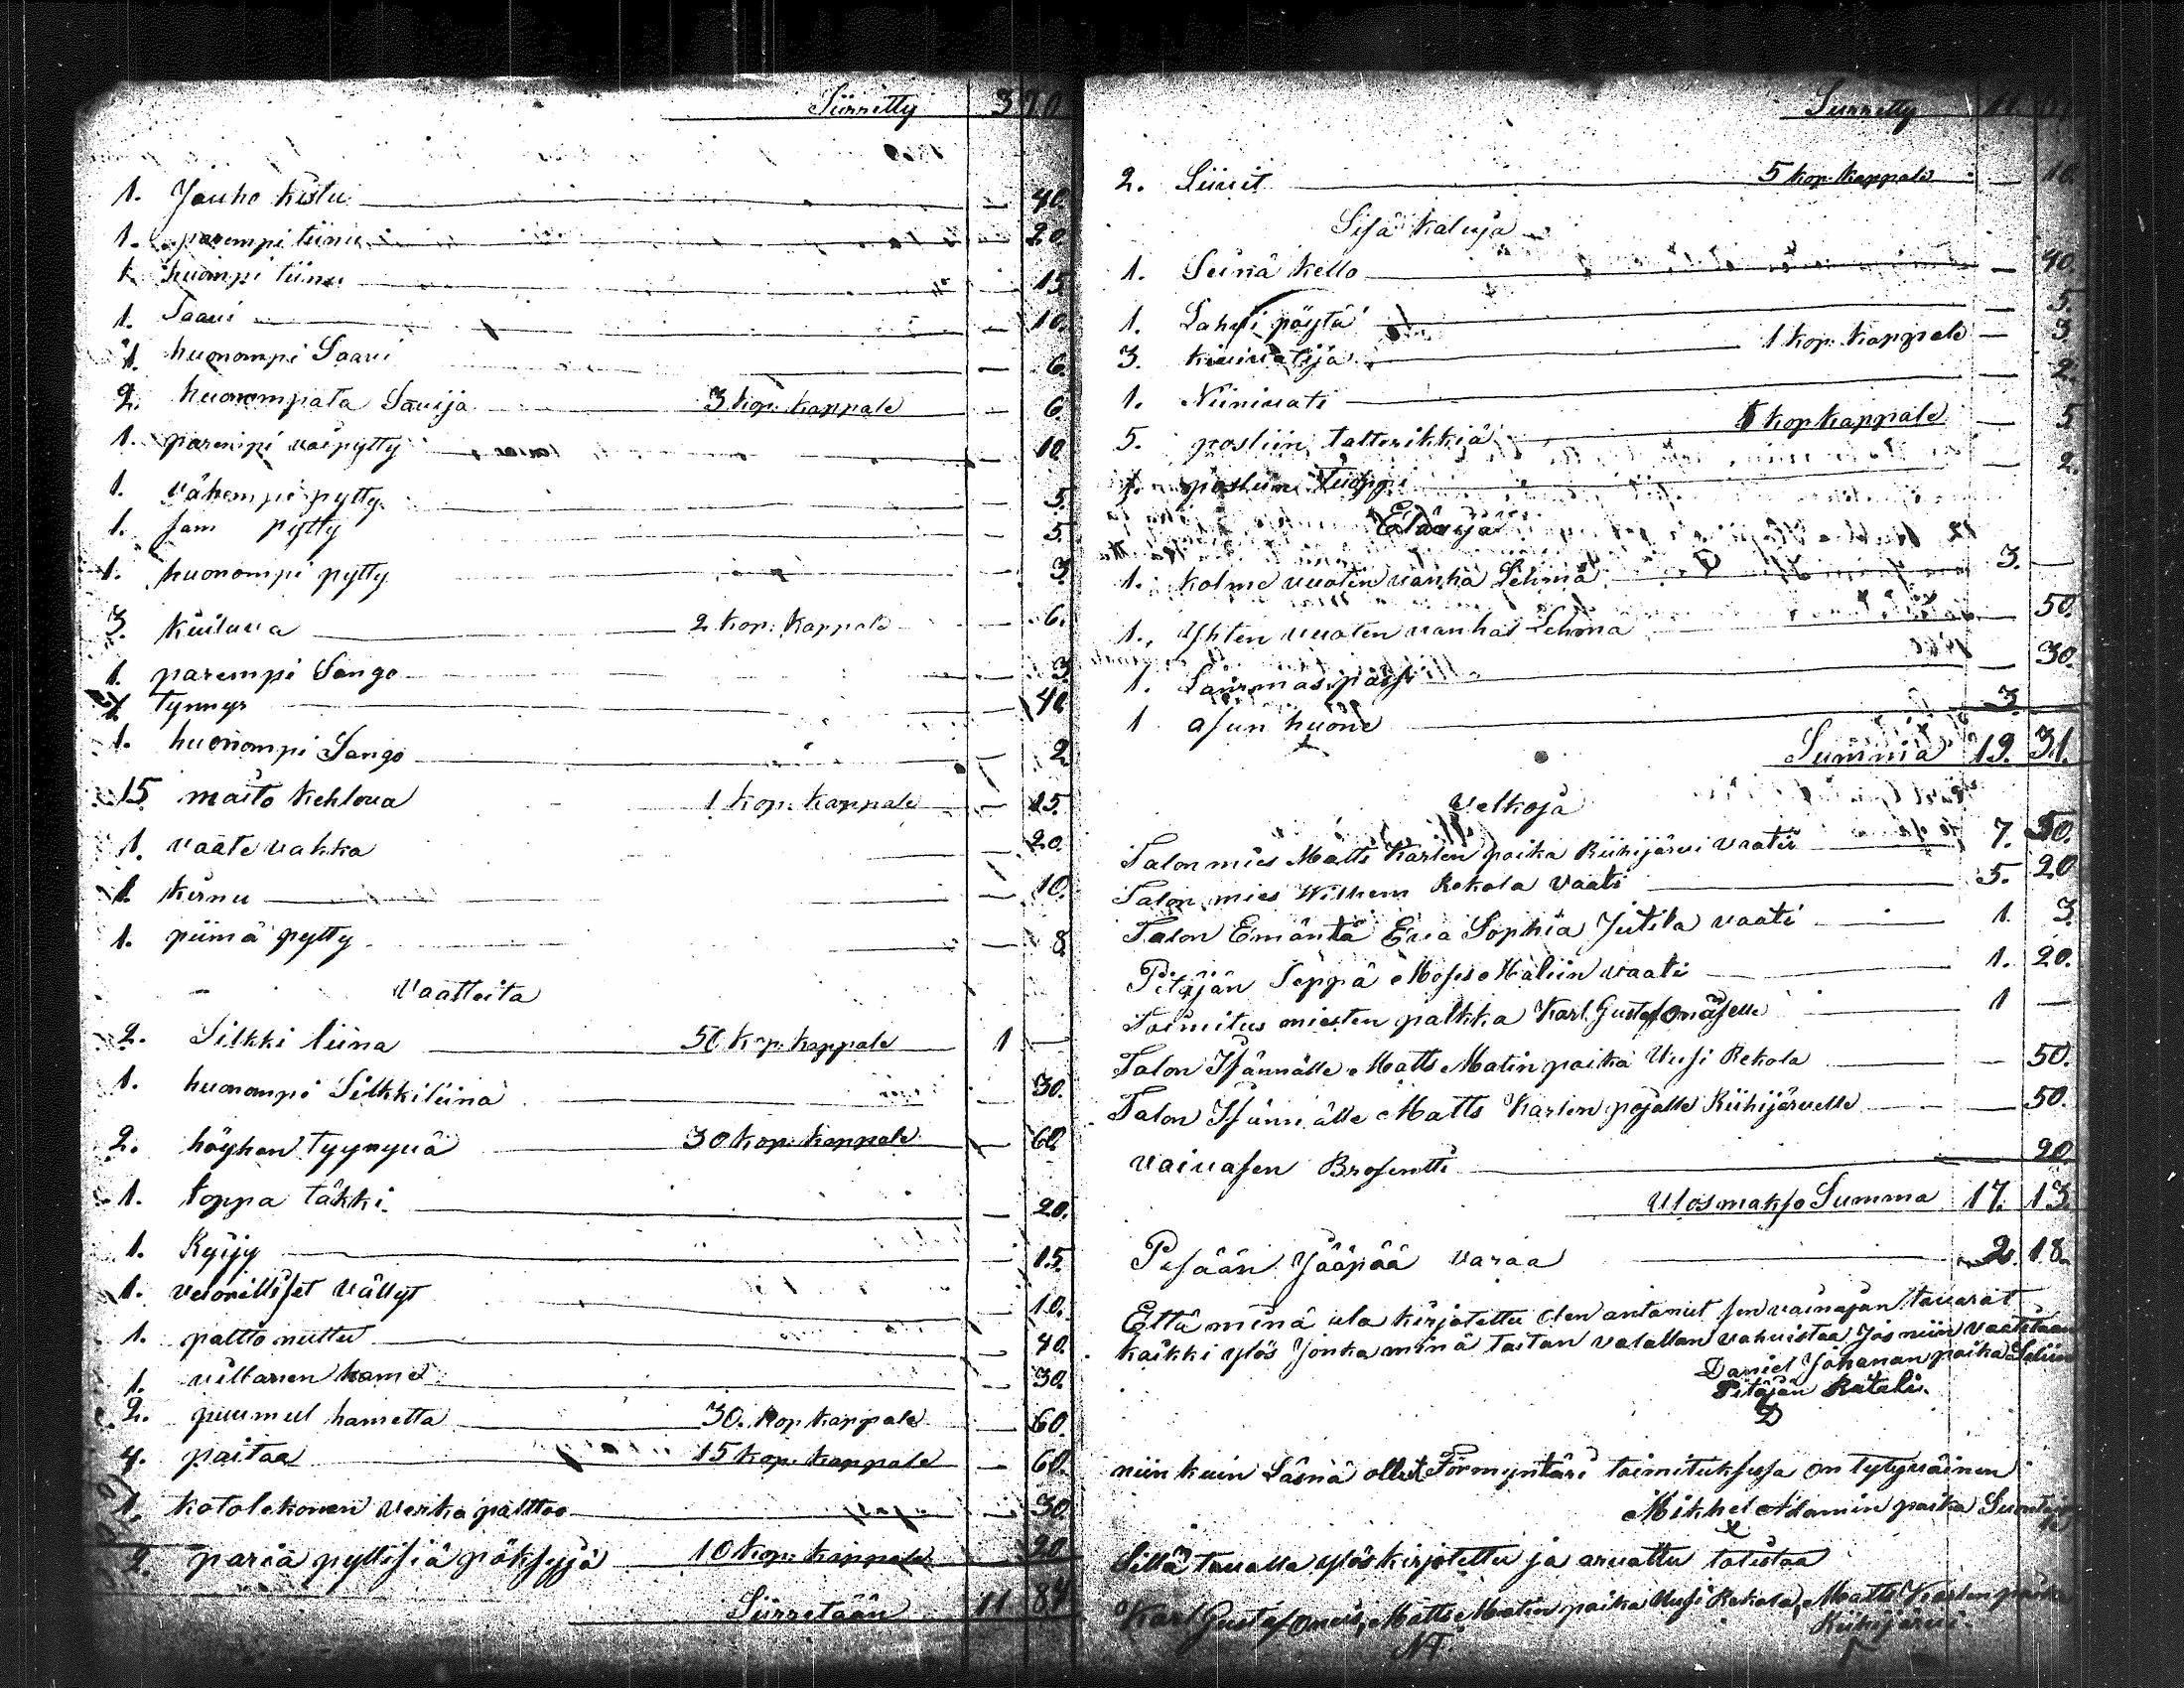 Siirretty 3 70
1. Jauho kistu — 40.
1. parempi tiinu — 20
1. huompi tiinu — 15
1. Saavi — 10.
1. huonompi Saavi — 6.
2. huonompata Savija 3 kop. kappale — 6.
1. parempi voi pytty — 10
1. vähempi pytty — 5.
1. sam pytty — 5.
1. huonompi pytty — 3
3. kiiluva 2 kop. kappale — 6.
1. parempi Sango — 3
tynnyr — 40
1. huonompi Sango — 2
15 maito kehlova 1 kop. kappale — 15.
1. vaate vakka — 20.
1. kirnu — 10.
1. piimä pytty — 8
Vaatteita
2. Silkki liina 50 kop. kappale 1 —
1. huonompi Silkkiliina — 30.
2. höyhen tyynyvä 30 kop. kappale — 60
1. toppa täkki — 20.
1. Ryijy — 15.
1. vällyt — 10.
1. paltto nuttu — 40.
1. villasen hame — 30.
2. puumul hametta 30. kop kappale — 60.
4. paitaa 15 kop. kappale — 60.
1. kotolekonen verka palttoo — 30
2. paria pyllisiä pöksyjä 10 kop. kappale — 20
Siirretään 11 84
Siirretty 11.
2. Liivit 5 kop kappale — 10.
Sisä kaluja
1. Seinä kello — 40.
1. Lahvi pöytä — 5.
3. kiuivatija 1 kop. kappale — 3
1. Niinivati — 2.
5. posliin talterikkiä 1 kop kappale — 5
1. posliin tuoppi — 2.
Eläviä
1. kolme vuoten vanha Lehmä 3. —
1. Yhten vuoten vanha Lehmä — 50.
1. Lammas pässi — 30.
1 asun huone 3.
Summa 19. 31.
Velkoja
Talon mies Matts Karlen poika Riihijärvi vaati 7. 50.
Talon mies Wilhem Rekola vaati 5. 20
Talon Emäntä Eva Sophia Jutila vaati 1. 3.
Pitäjän Seppä Moses Malin vaati 1. 20.
Toimitus miesten palkka Karl Gustaf 1 —
Talon Isännälle Matts Matin poika Uusi Rekola — 50.
Talon Isännälle Matts Karlen pojalle Riihijärvelle — 50.
vaivasen Brosentti — 20
Ulosmakso Summa 17. 13.
Pesään Jääpää varaa 2. 18.
Että minä ala kirjotettu olen antanut sen vainajan tavarat
kaikki ylös Jonka minä taitan valallan vahvistaa Jos niin vaatitaan
Daniel Johanan poika
Pitäjän Rätäli.
niin kuin Läsnä ollut Förmyntäri toimituksesa on tytyväinen
Mikkel Adamin poika
Sillä tavalla ylöskirjotettu ja arvattu totistaa
Karl Gustaf Matts Matin poika Uusi Rekola, Matts Karlen poika
Riihijärvi.